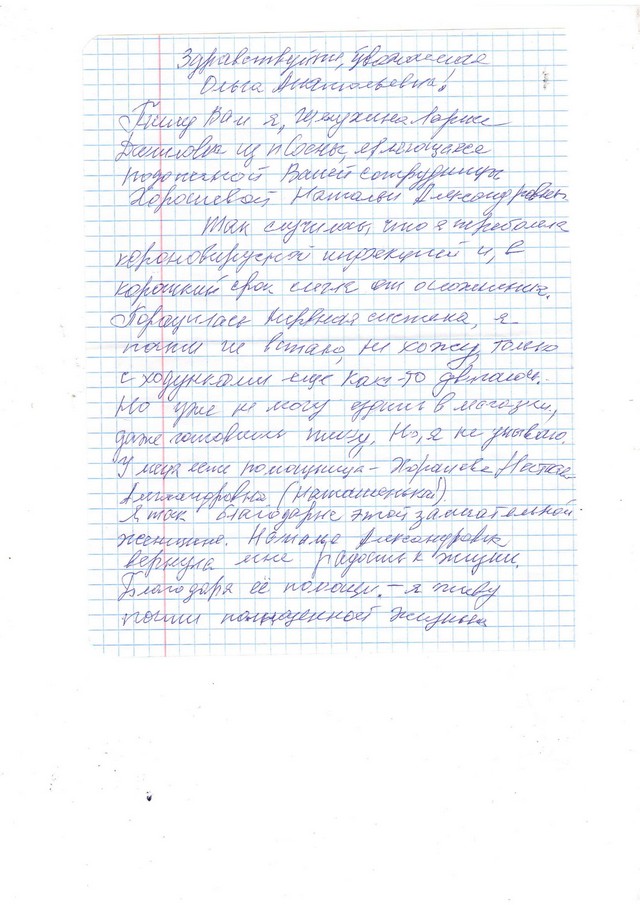 Здравствуйте, уважаемая
Ольга Анатольевна!
Пишу Вам я, Лариса
Даниловна из п Сосны, являющаяся
подопечной Вашей сотрудницы
Хорошевой Натальи Александровны.
Так случилось, что я переболела
короновирусной инфекцией и, в
короткий срок слегла от осложнения.
Порушилась нервная система, я
почти не встаю, не хожу, только
с ходунками еще как-то двигаюсь.
Но уже не могу ходить в магазин,
даже готовить пищу. Но, я не унываю.
У меня есть помощница - Хорошева Наталья
Александровна (Наташенька).
Я так благодарна этой замечательной
женщине. Наталья Александровна
вернула мне радость к жизни.
Благодаря её помощи - я живу
почти полноценной жизнью